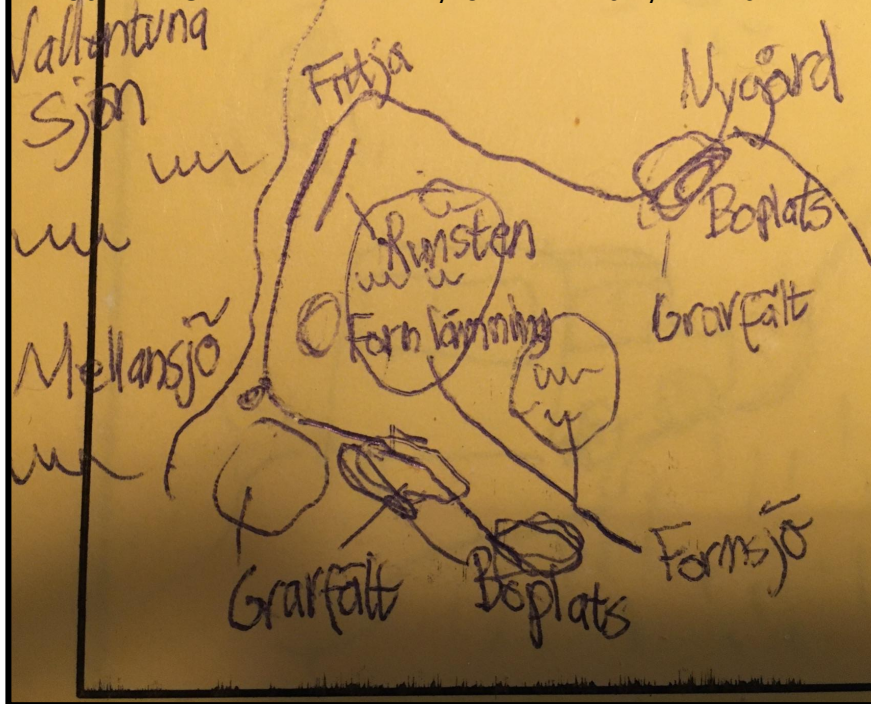 Vallentuna
Sjön
Fittja
Nygård
Boplats
Runsten
Gravfält
Fornlämning
Mellansjö
Fornsjö
Gravfält
Boplats